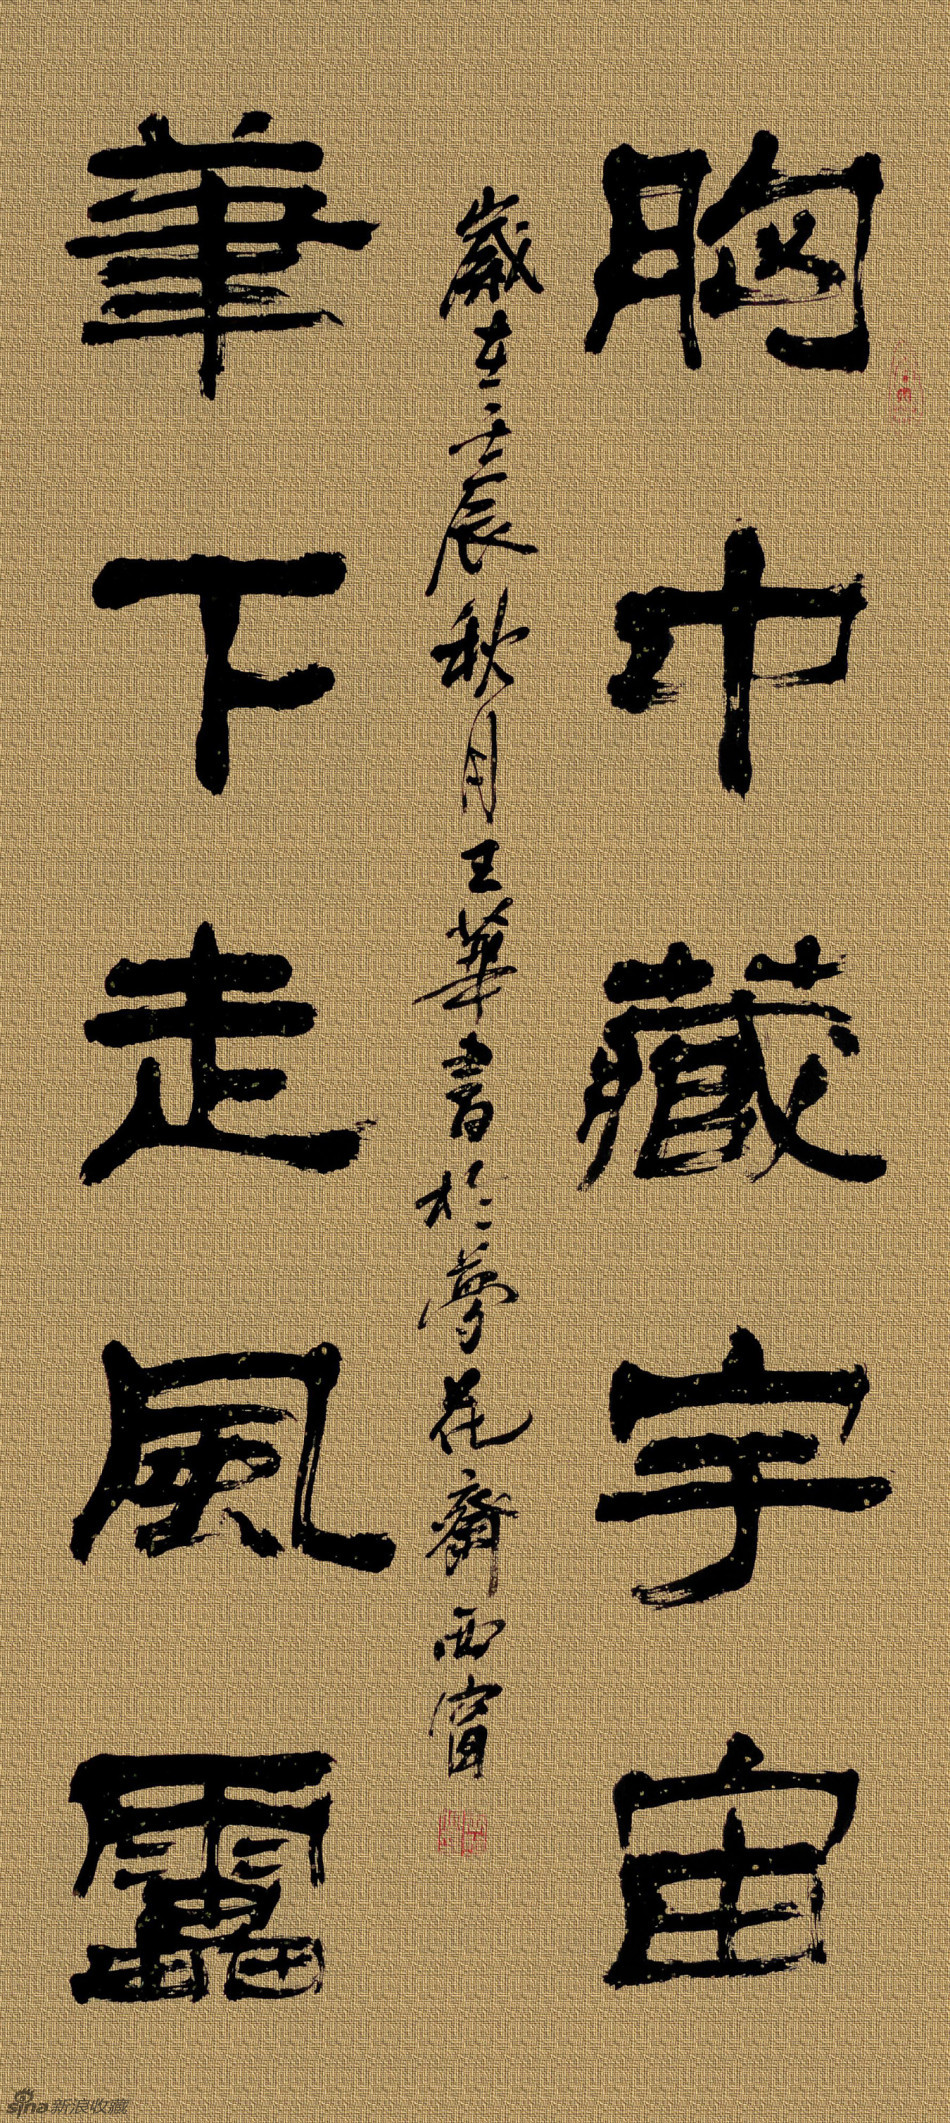 胸中藏宇宙
歲在壬辰秋月王華書於夢花齋西窗
筆下走風靁
sina新浪收藏